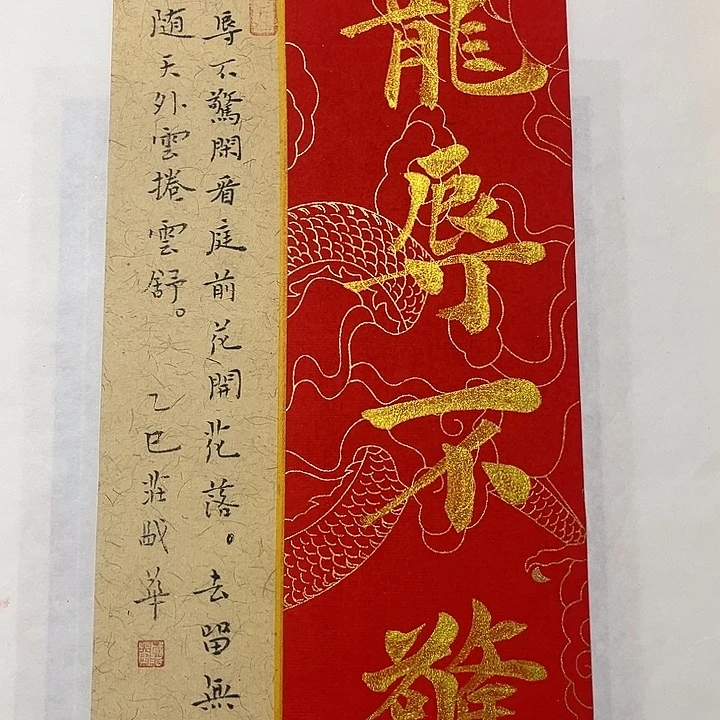 寵辱不驚
辱不驚閑看庭前花開花落。去留無
随天外雲捲雲舒。乙巳莊華